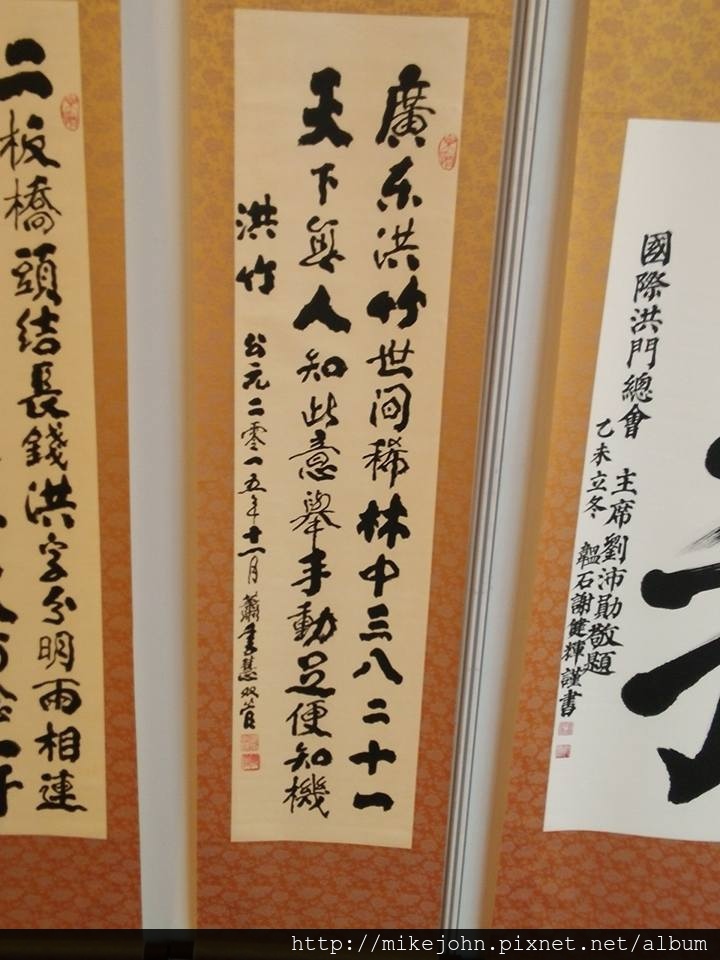 國際洪門總會
主席劉沛勛敬題
乙未立冬
韞石謝健輝謹書
廣东洪竹世间稀林中三八二十一
天下無人知此意舉手動足便知機
洪竹
公元二零一五年十一月
二板橋頭結長錢洪字分明兩相連
http://mikejohn.pixnet.net/album